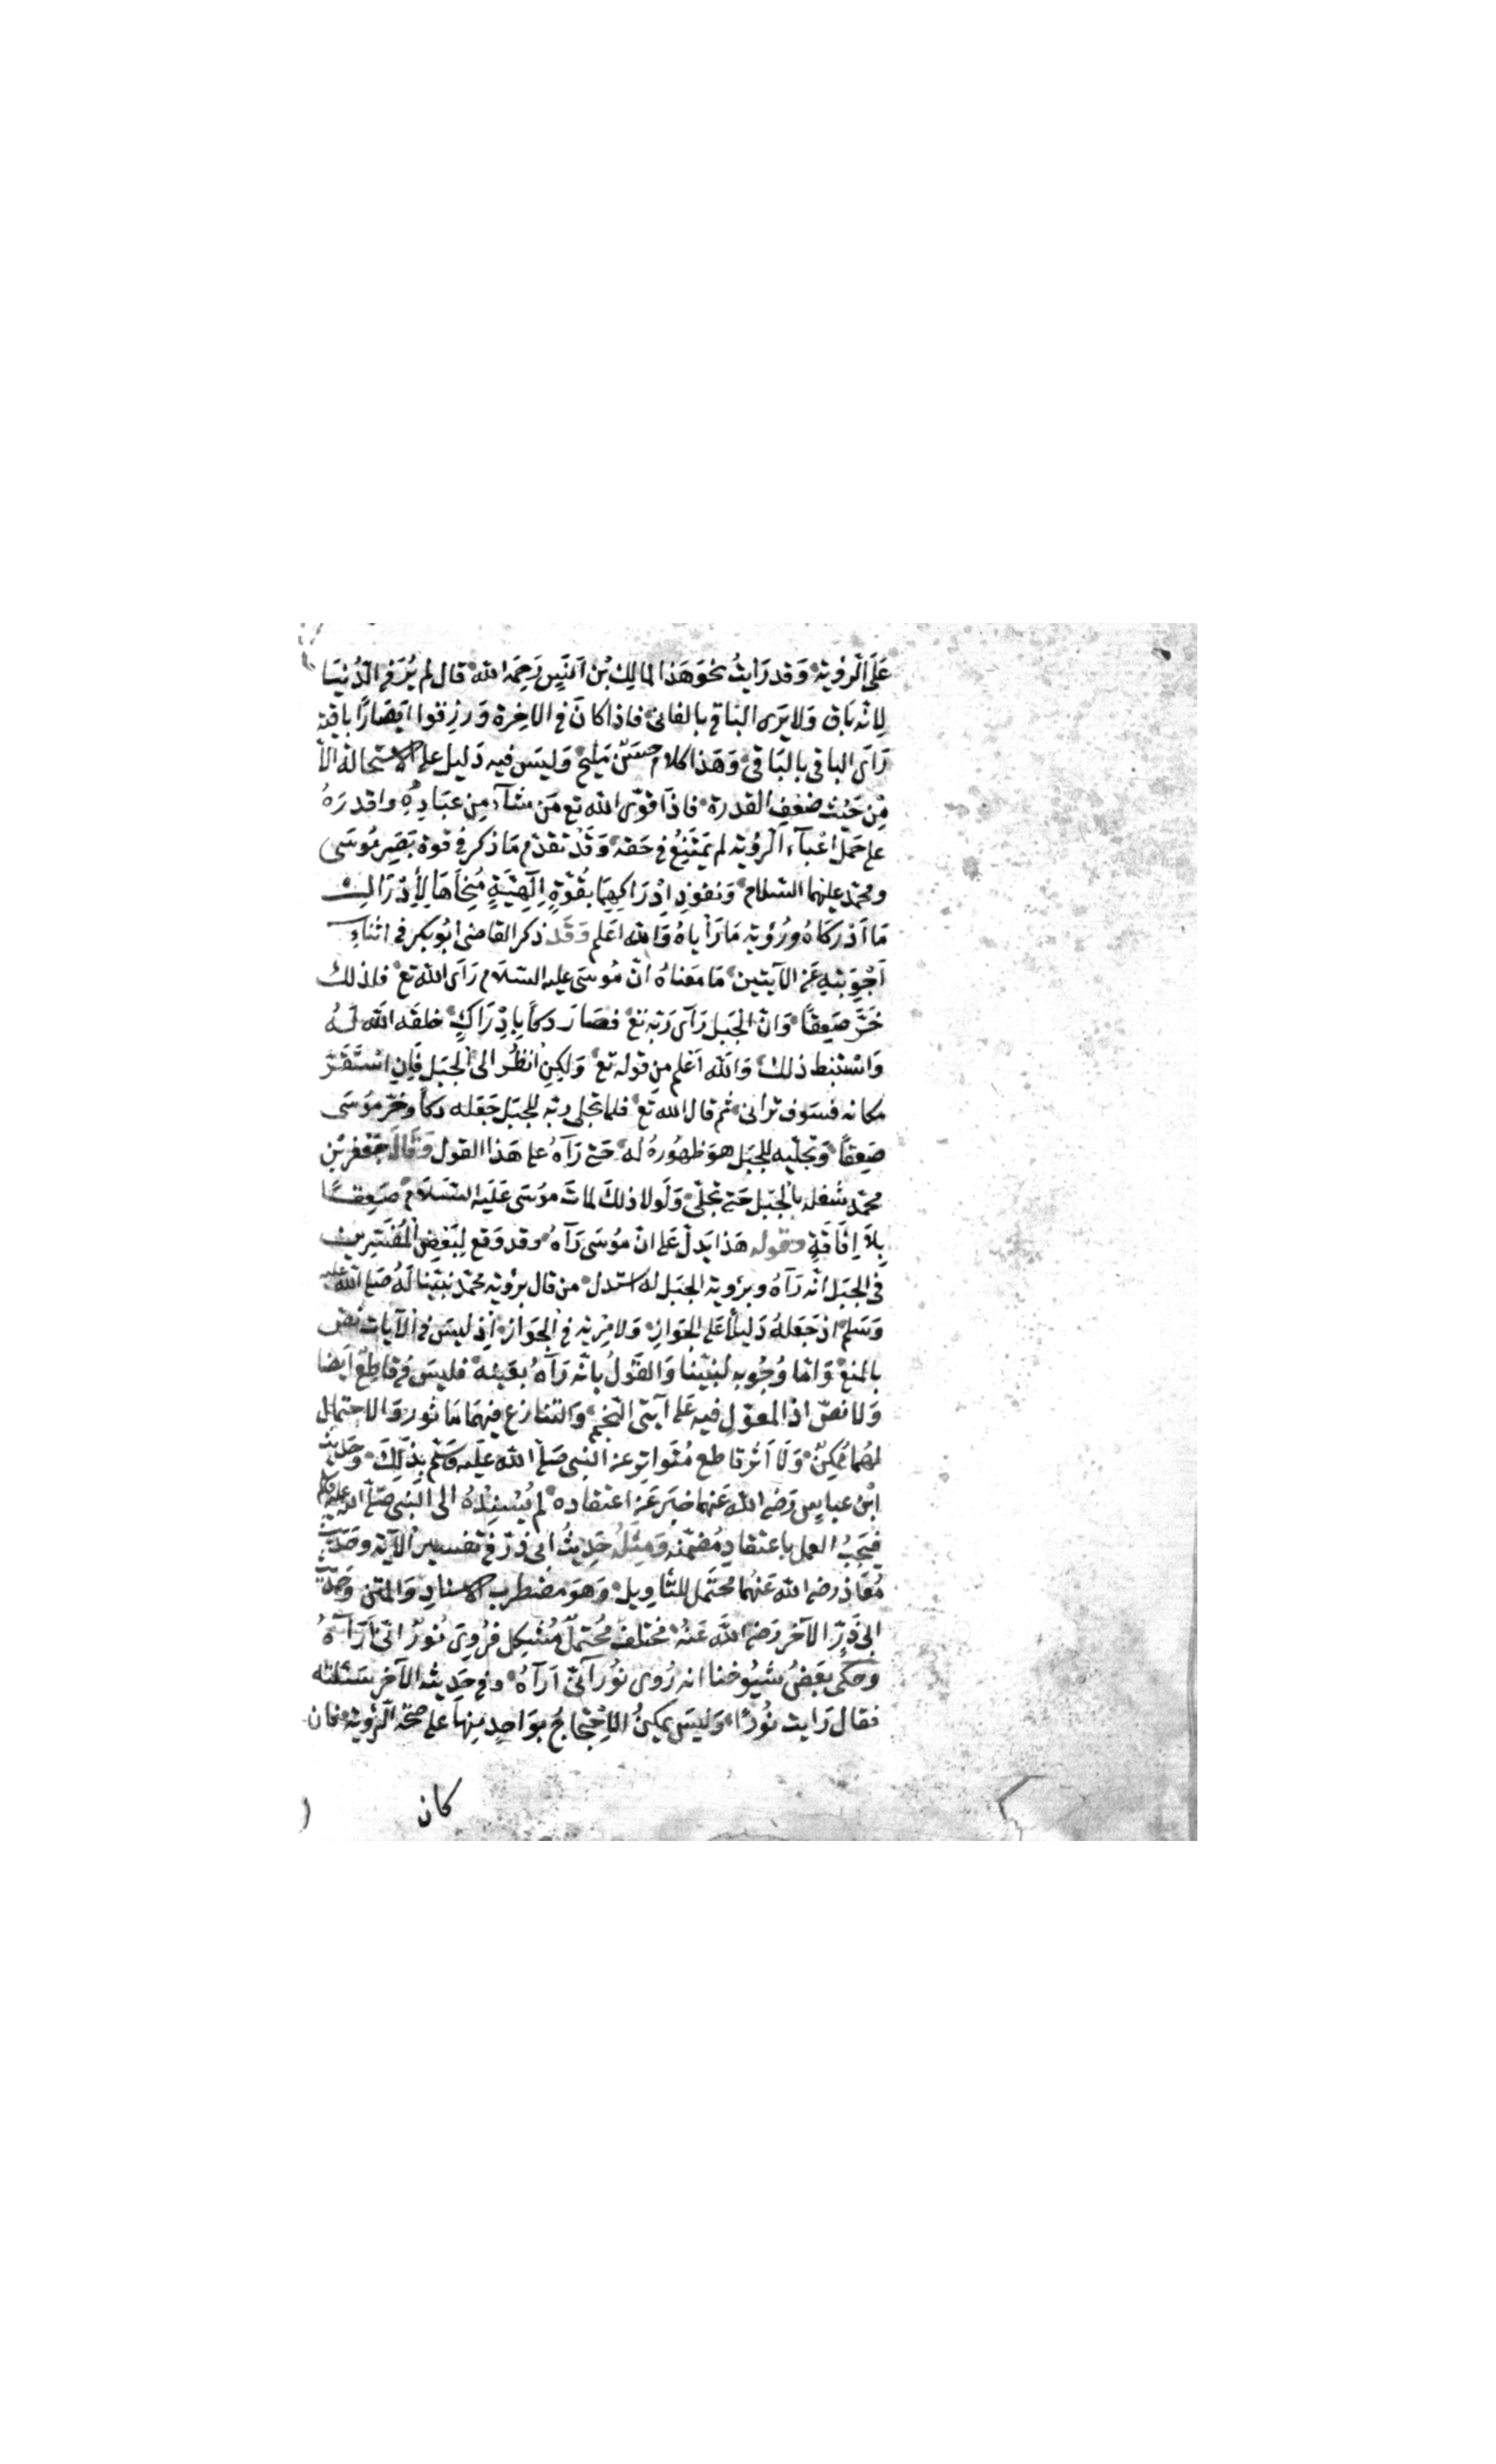 عَلَى الرؤية وَقد رَايتُ نحوَ هَذا لمالِك بْن اَنَسٍ رَحِمَهُ الله قال لم يُرَ فى الدُّنيَا
لِانّه باق وَلا يَرى البَاقى بالفانى فاذا كانَ فى الاخِرة وَرزِقوا ابصَارًا باقية
رَاَى الباقى بالبَاقى وَهَذا كلام حسَنٌ مَليح وَليسَ فيه دَليل على الاستحالة الاّ
مِنْ حَيْث ضعْفِ القدرة فاذَا قوّى الله تع مَن شآء مِن عبَادِه واقدرَهُ
على حَمْل اعْبآء الرؤية لم يَمتَنِعْ فى حَقه وَقَدْ تقدّم مَا ذكر فى قوة بَصَرِ مُوسَى
ومحمّد عليهما السّلام وَنفوذِ اِدْرَاكِهِمَا بقُوّةٍ اِلَهيّةٍ مُنِحَاهَا لِاِدْرَاكِ
مَا اَدْركَاهُ ورُؤية مَا رَأَيَاهُ وَالله اَعلم وَقَد ذكر القاضى ابُو بكر فى اثناءِ
اَجْوِبَتِهِ عَن الآيتين مَا معناهُ انّ مُوسَى عليه السّلام رَاَى الله تع فلذلك
خَرَّ صَعِقًا وَانّ الجَبل رَآى رَبّه تع فصَارَ دكاً بِاِدْرَاكٍ خلقه الله لَهُ
وَاسْتنبط ذلك وَالله اَعْلم من قوله تع وَلكِن انظُر الى الجبَل فَاِنِ اسْتَقَرَّ
مكانه فسَوف ترانى ثم قال الله تع فلما تجلى ربّه للجبَل جَعَله دكاً وخرّ مُوسَى
صَعِقاً وَتَجلّيه للجبَل هوَ ظهُورهُ له حَتى رَآهُ على هَذا القول وَقَالَ جَعْفر بْن
محمّد شُغله بالجبَل حَتى تجلّى وَلَولا ذلكَ لماتَ مُوسَى عَلَيْه السّلام صَعِقًا
بِلاَ اِفَاقَةٍ وقوله هَذا يَدلّ عَلى انّ مُوسَى رَآهُ وقد وَقع لِبَعْضِ المُفَسّرِين
فى الجبَل انّه رَآهُ وبرؤية الجبَل له استدل من قال برؤية محمّد نبيّنا لَهُ صَلى الله عليه
وَسَلم اذ جَعَلهُ دَليلاً عَلى الجوَازِ وَلا مِرْيَة فى الجوَاز اِذ ليسَ فى الآيات نصّ
بالمنع وَامّا وُجُوبه لنبيّنا وَالقولُ بانّه رَآهُ بعَينه فليسَ فيه قاطِع اَيضا
وَلا نصّ اذ المعوّل فيه عَلى آيتى النّجم وَالتنازع فيهمَا مَاثور وَالاحتمال
لهُمَا مُمكِنٌ وَلَا اَثر قاطع مُتواتر عَن النبى صَلى الله عَليه وسَلم بذلِكَ وحَديث
ابْن عباسٍ رَضى الله عَنهُما خبَر عَن اعتقاده لم يُسْنِدْهُ الى النّبى صَلى الله عليه وسلم
فيَجبُ العمل باعتقادِ مُضمّنه وَمِثْلُ حَدِيثُ ابى ذرّ فى تفسير الآية وحَديث
مُعَاذ رضى الله عَنهُما مُحتمَل للتّأوِيل وَهوَ مضطرب الاسنادِ وَالمَتن وَحديث
ابى ذَرٍّ الآخر رَضى الله عَنهُ مُختلف مُحْتمَل مُشْكِل فرُوِىَ نُورٌ اَنّى اَرَاهُ
وحَكَى بَعْضُ شيُوخنا انه رُوِى نُورَانىّ اَرَآهُ وفى حَدِيثه الآخر سَئلته
فقال رَايت نُورًا وَليسَ يمكِنُ الاِحْتِجَاجُ بوَاحِدٍ مِنها على صحّة الرّؤية فان
كان